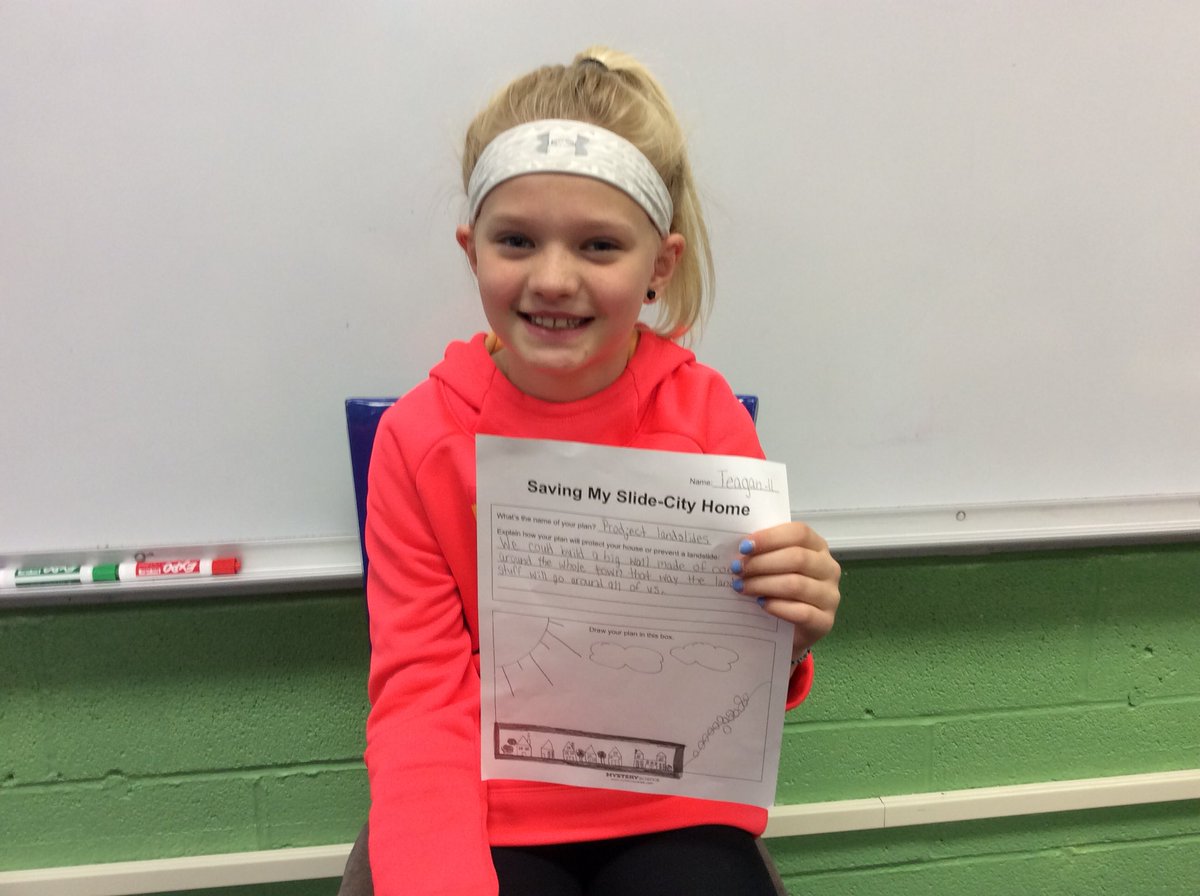 Name: Teagan H
Saving My Slide-City Home
What's the name of your plan? Prodject landslides
Explain how your plan will protect your house or prevent a landslide.
We could build a big wall made of
around the whole town that way the
stuff will go around all of us.
Draw your plan in this box.
MYSTERY science
EXPO
EXPO